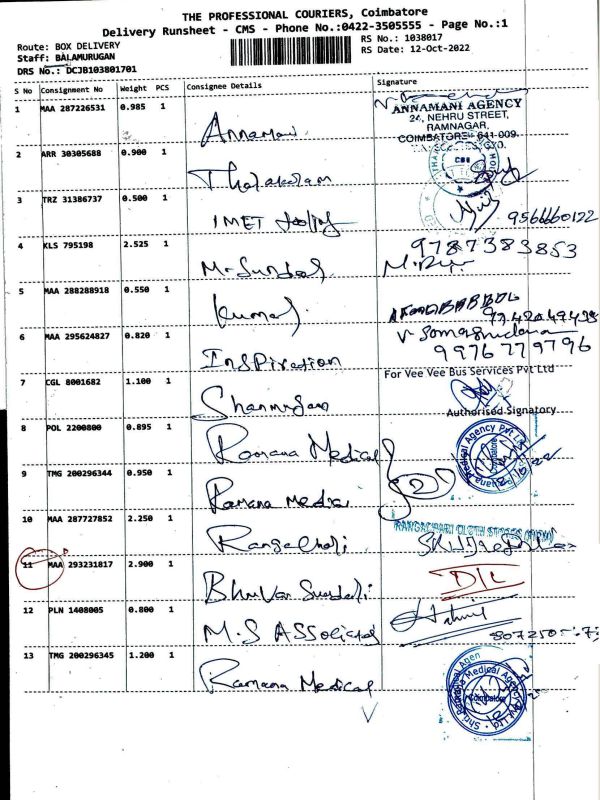 THE PROFESSIONAL COURIERS, Coimbatore
Delivery Runsheet - CMS - Phone No.:0422-3505555 - Page No.:1
Route: BOX DELIVERY
RS No.: 1038017
Staff: BALAMURUGAN
RS Date: 12-Oct-2022
DRS No.: DCJB103801701
S No Consignment No Weight PCS Consignee Details Signature
1 MAA 287226531 0.985 1
ANNAMANI AGENCY
24, NEHRU STREET,
RAMNAGAR,
COIMBATORE - 641 009.
2 ARR 30305688 0.900 1
3 TRZ 31386737 0.500 1 IMET
9566660122
4 KLS 795198 2.525 1
9787383853
5 MAA 288288918 0.550 1 Kumar
6 MAA 295624827 0.820 1 Inspiration
9976779796
7 CGL 8001682 1.100 1 Shanmugam
For Vee Vee Bus Services Pvt Ltd
Authorised Signatory
8 POL 2200800 0.895 1 Ramana Medical
9 TMG 200296344 0.950 1 Ramana
10 MAA 287727852 2.250 1
11 MAA 293231817 2.900 1
D/L
12 PLN 1408005 0.800 1 M.S Associates
13 TMG 200296345 1.200 1 Ramana Medical
Coimbatore